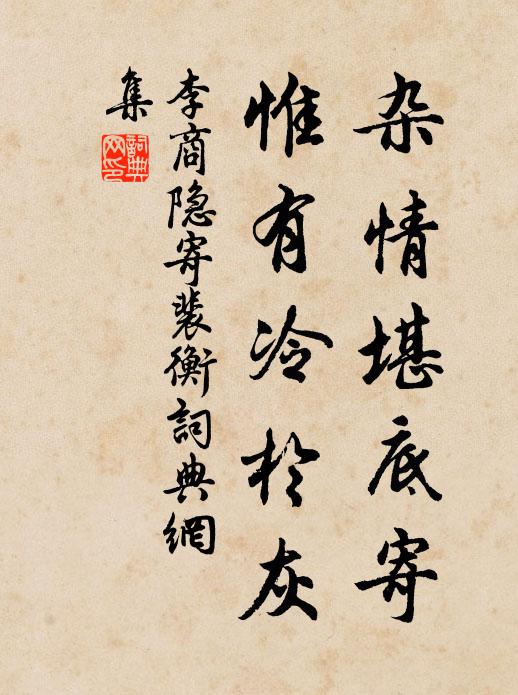 杂情堪底寄
惟有冷於灰
李商隐寄裴衡詞典網
集
詞典
网印